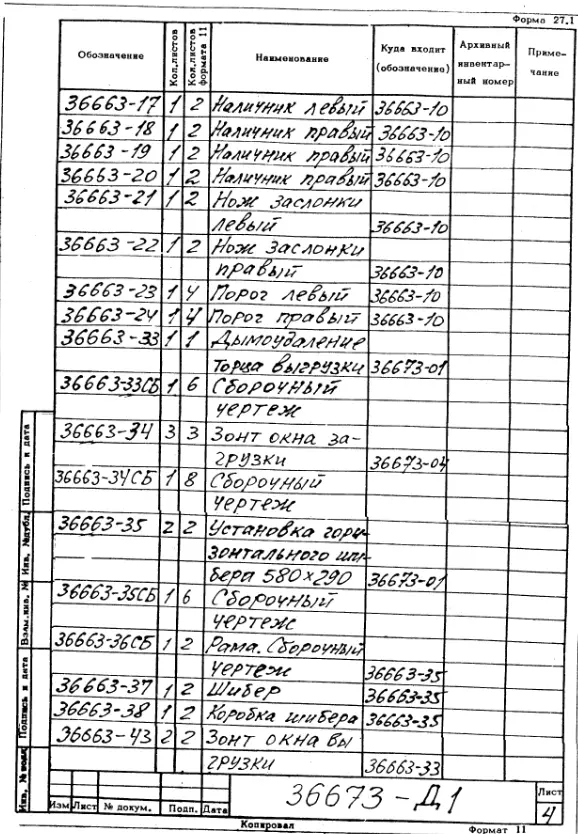 Форма 27.1
Обозначение Кол.листов Кол.листов формата 11 Наименование Куда входит (обозначение) Архивный инвентар-ный номер Приме-чание
36663-17 1 2 Наличник левый 36663-10
36663-18 1 2 Наличник правый 36663-10
36663-19 1 2 Наличник правый 36663-10
36663-20 1 2 Наличник правый 36663-10
36663-21 1 2 Нож заслонки
левый 36663-10
36663-22 1 2 Нож заслонки
правый 36663-10
36663-23 1 4 Порог левый 36663-10
36663-24 1 4 Порог правый 36663-10
36663-33 1 1 Дымоудаление
торца выгрузки 36673-01
36663-33СБ 1 6 Сборочный
чертеж
36663-34 3 3 Зонт окна за-
грузки 36673-04
36663-34СБ 1 8 Сборочный
чертеж
36663-35 2 2 Установка гори
зонтального ши-
бера 580×290 36673-01
36663-35СБ 1 6 Сборочный
чертеж
36663-36СБ 1 2 Рама. Сборочный
чертеж 36663-35
36663-37 1 2 Шибер 36663-35
36663-38 1 2 Коробка шибера 36663-35
36663-43 2 2 Зонт окна вы
грузки 36663-33
Подпись и дата
Инв. №дубл.
Взам.инв. №
Подпись и дата
Инв. №подл
Изм Лист № докум. Подп. Дата
36673-Д1
Лист
4
Копировал Формат 11